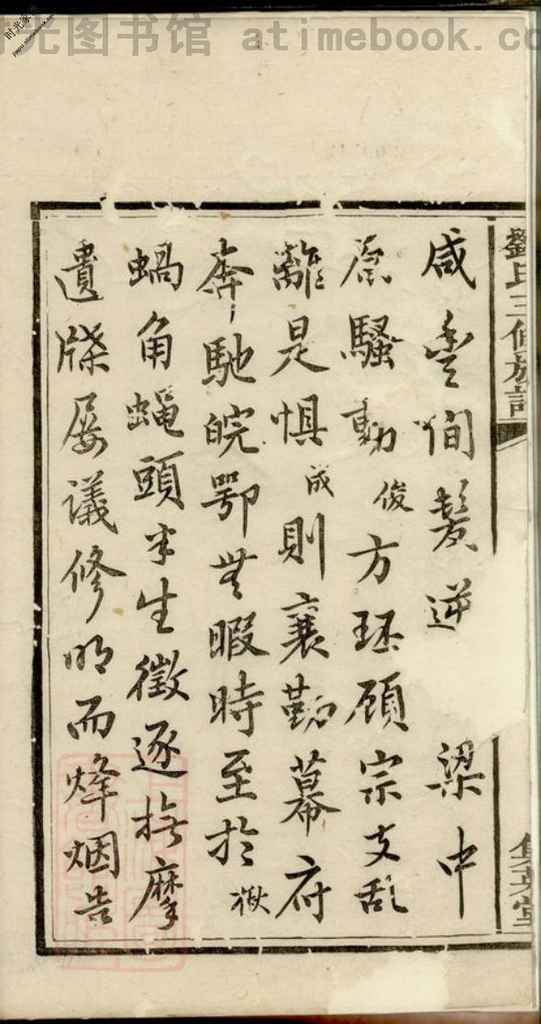 时光图书馆 atimebook.co
劉氏三修族譜
集英堂
咸豊间髮逆 梁中
原騷動俊方珏顾宗支乱
離是惧成則襄勷幕府
奔馳皖鄂無暇時至於猷
蝸角蝇頭半生徵逐撫摩
遺牒屡議修明而烽烟告